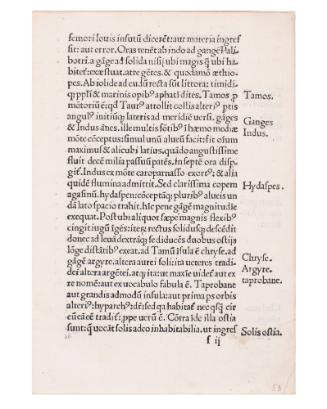 femori Iouis insutū diceret: aut materia ingres
sit: aut error. Oras tenēt ab indo ad gangē Pali
botri. a gāge ad
nisi ubi magis q̃ ubi ha
bitet: exæstuat. atre gētes. & quodāmō æthio
pes. Ab iolide ad cudū recta sūt littora: timidi
q̨ ppli & marinis opibᵒ aphati dites. Tamos p̱
Tamos.
motoriū ē: qd Taurᵒ attollit
angulᵒ initiūq̨ lateris ad meridiē uersi. gāges
Ganges
& Indus ānes. ille multis fōtibᵒ ī hæmo mediæ
Indus.
mōte cōceptus: simul unū alueū facit: fit oīum
maximus & alicubi latius, quādo angustissime
fluit decē milia passuū patēs. In septē ora disp̱
git. Indus ex mōte caroparnasso exortᵒ: & alia
quidē flumina admittit. Sed clarissima copem
Hydaspes.
agasinū. hydaspen: cōceptāq̨ pluribᵒ alueis un
dā lato spacio trahit. hic pene gāgē magnitudīe
exequat. Post ubi aliquot sæpe magnis flexibᵒ
cingit iugū īgēs: iteꝝ rectus solidusq̨ descēdit
donec ad leuā dextrāq̨ se diducēs duobus ostijs
lōge distātibᵒ exeat. ad Tamū īsula ē chryse. ad
Chryse.
gāgē argyre. altera aurei soli: ita ueteres tradi-
Argyre.
dere: altera argētei. atq̨ ita: ut maxīe uideᵗ aut ex
taprobane.
re nomē: aut ex uocabulo fabula ē. Taprobane
aut grandis admodū īsula: aut prima ps orbis
alteriᵒ: hyparchᵒ dr̄: sed qa habitaᵗ nec q̄sq̄ cir
cū eā eē tradiᵗ: ppe uerū ē. Cōtra īde illa ostia
sunt: q̨ uocāt solis adeo inhabitabilia, ut ingres
Solis ostia.
f ij